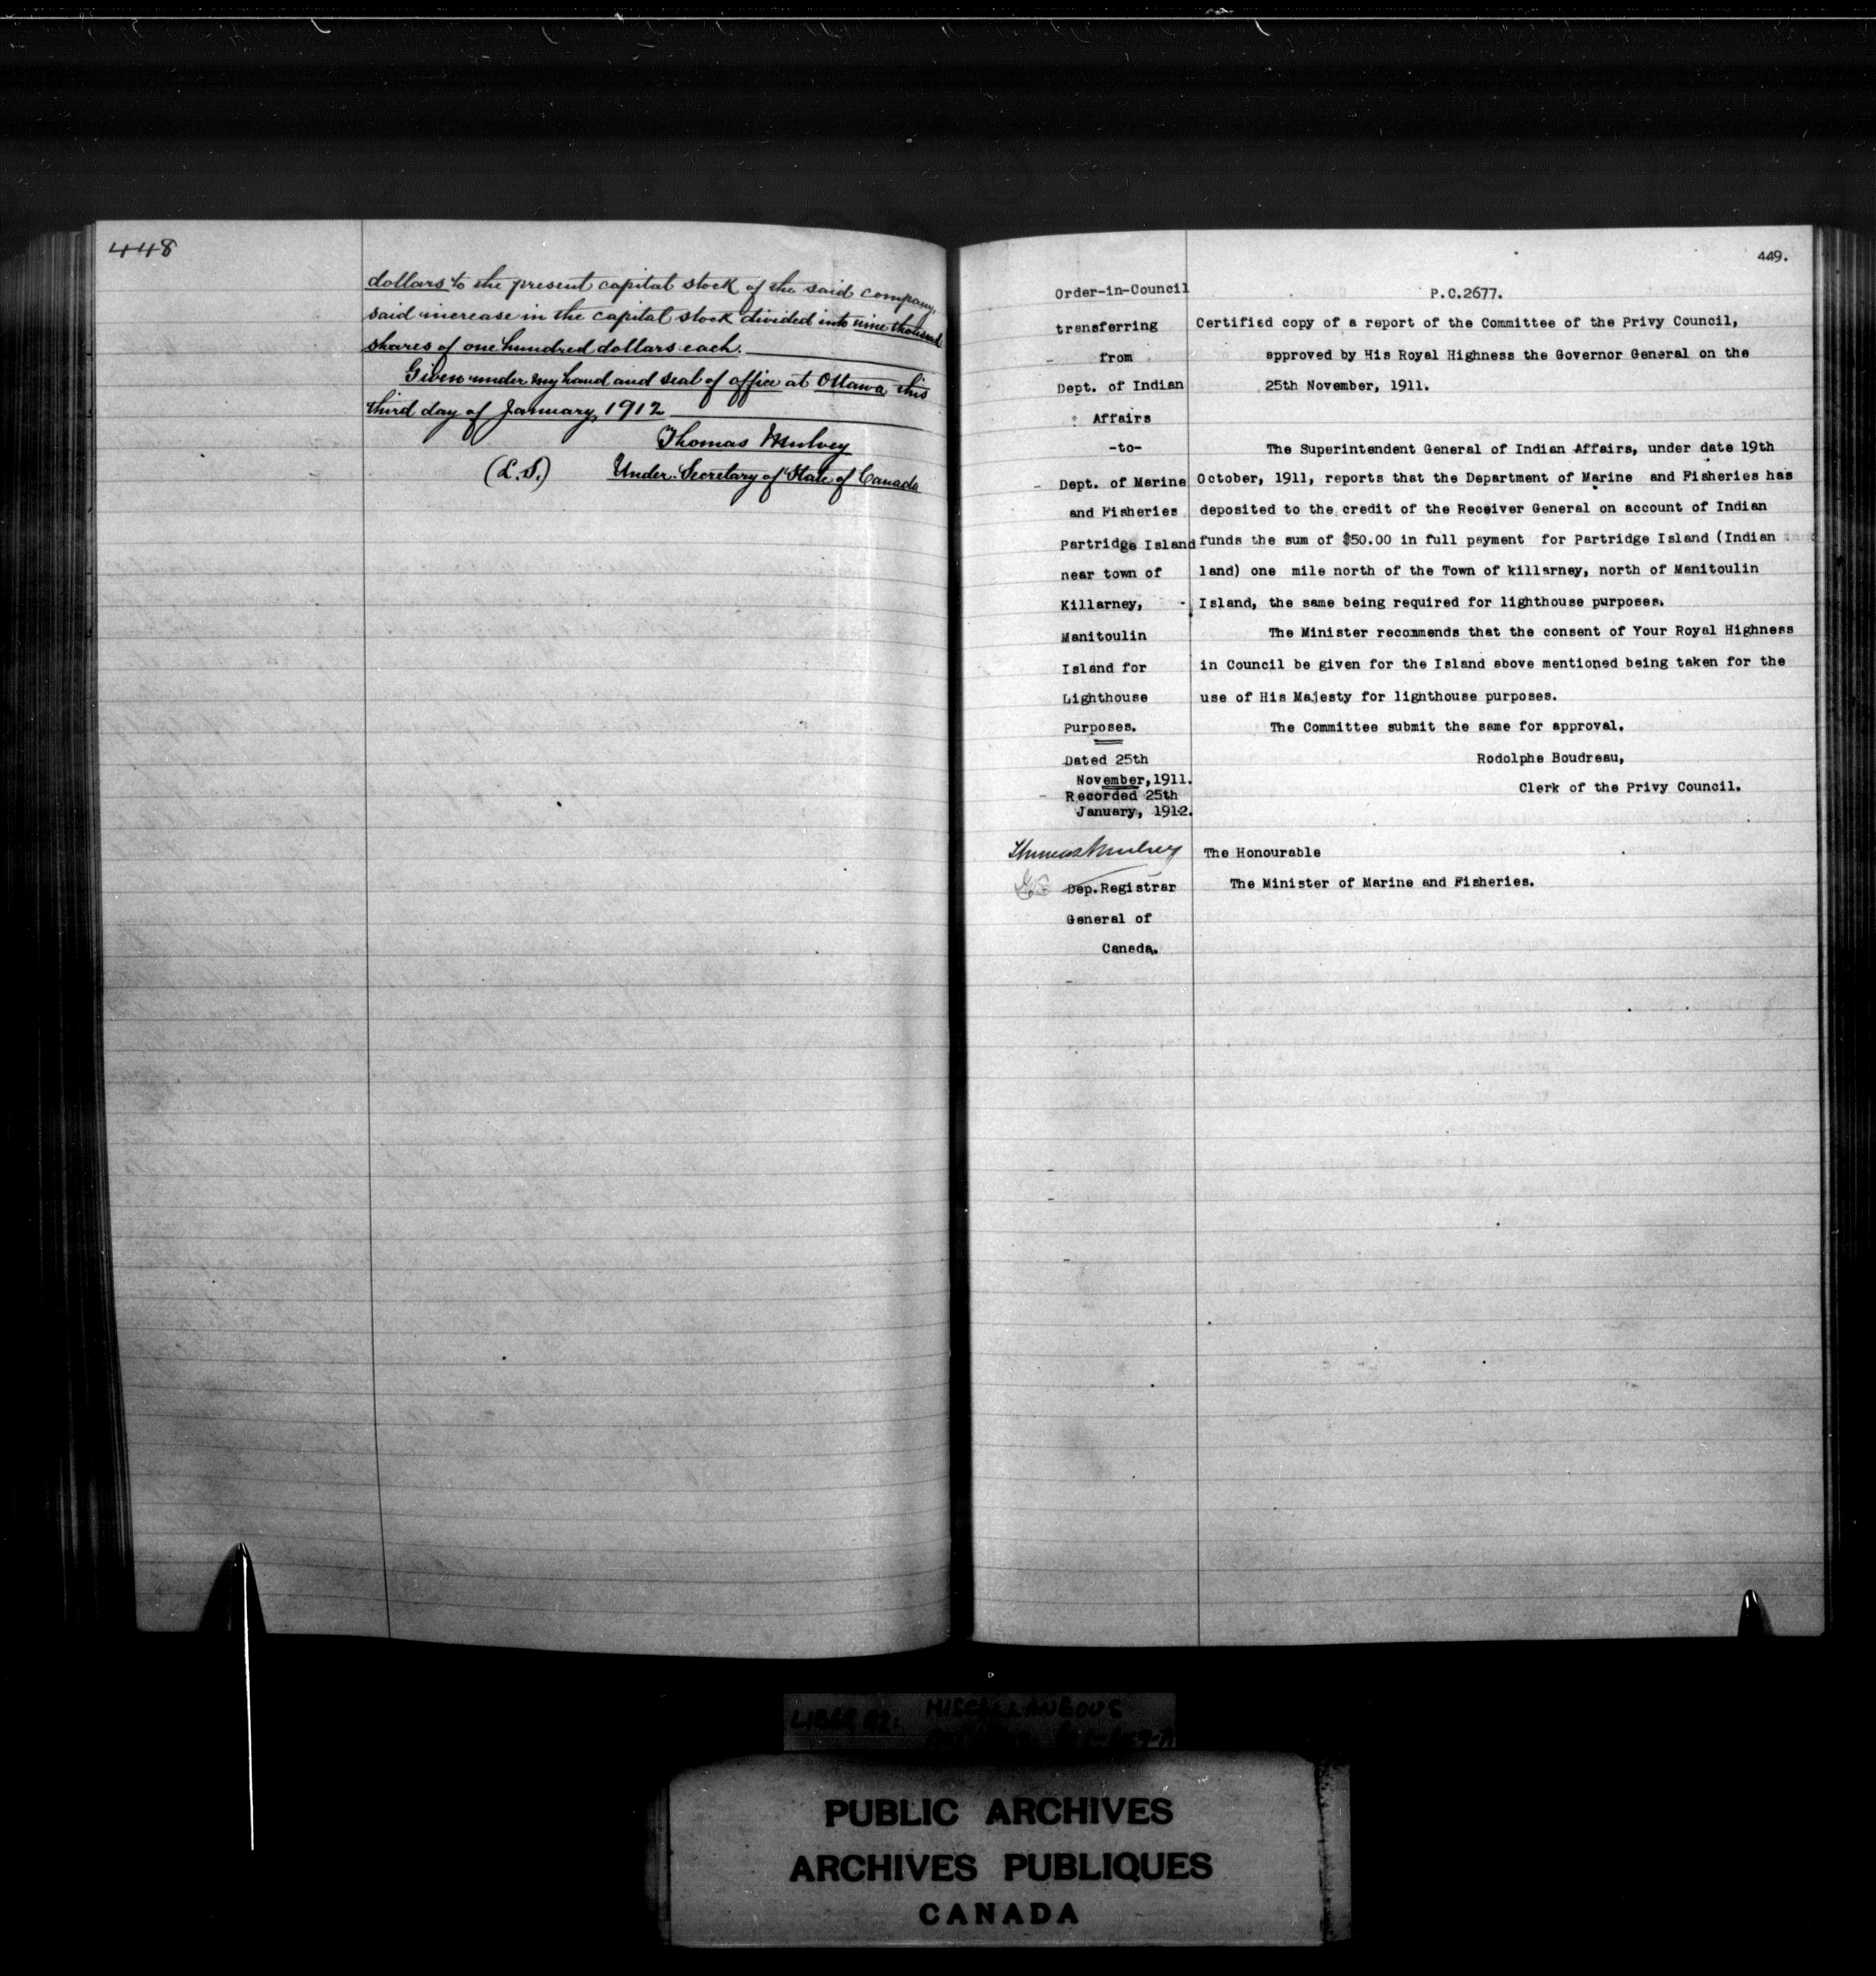 448
dollars to the present capital stock of the said company,
said increase in the capital stock divided into nine thousand
shares of one hundred dollars each.
Given under my hand and seal of office at Ottawa this
third day of January, 1912
Thomas Mulvey
(L.S.) Under-Secretary of State of Canada
449.
Order-in-Council
transferring
from
Dept. of Indian
Affairs
-to-
Dept. of Marine
and Fisheries
Partridge Island
near town of
Killarney,
Manitoulin
Island for
Lighthouse
Purposes.
Dated 25th
November, 1911.
Recorded 25th
January, 1912.
Thomas Mulvey
Dep. Registrar
General of
Canada.
P.C.2677.
Certified copy of a report of the Committee of the Privy Council,
approved by His Royal Highness the Governor General on the
25th November, 1911.
The Superintendent General of Indian Affairs, under date 19th
October, 1911, reports that the Department of Marine and Fisheries has
deposited to the credit of the Receiver General on account of Indian
funds the sum of $50.00 in full payment for Partridge Island (Indian
land) one mile north of the Town of killarney, north of Manitoulin
Island, the same being required for lighthouse purposes.
The Minister recommends that the consent of Your Royal Highness
in Council be given for the Island above mentioned being taken for the
use of His Majesty for lighthouse purposes.
The Committee submit the same for approval.
Rodolphe Boudreau,
Clerk of the Privy Council.
The Honourable
The Minister of Marine and Fisheries.
MISCELLANEOUS
PUBLIC ARCHIVES
ARCHIVES PUBLIQUES
CANADA